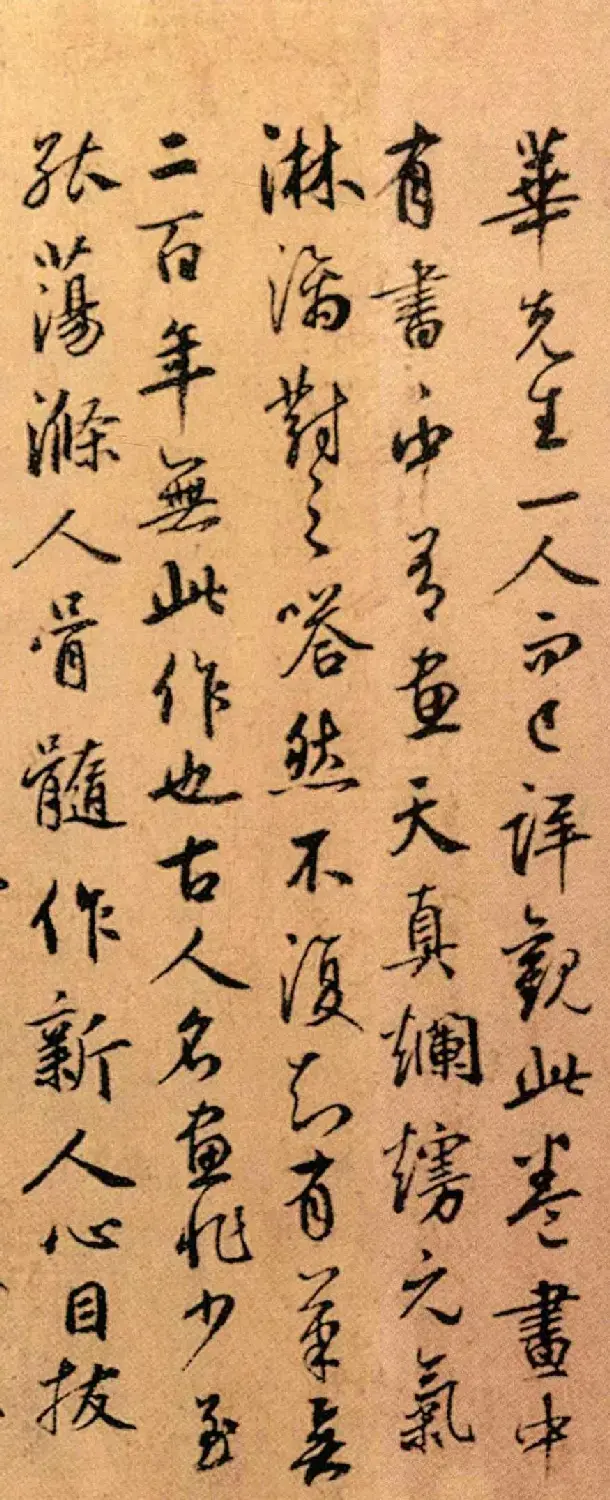 華先生一人而已詳觀此卷畫中
有書書中有畫天真爛熳元氣
淋漓對之嗒然不復知有筆矣
二百年無此作也古人名畫非少至
能蕩滌人骨髓作新人心目拔